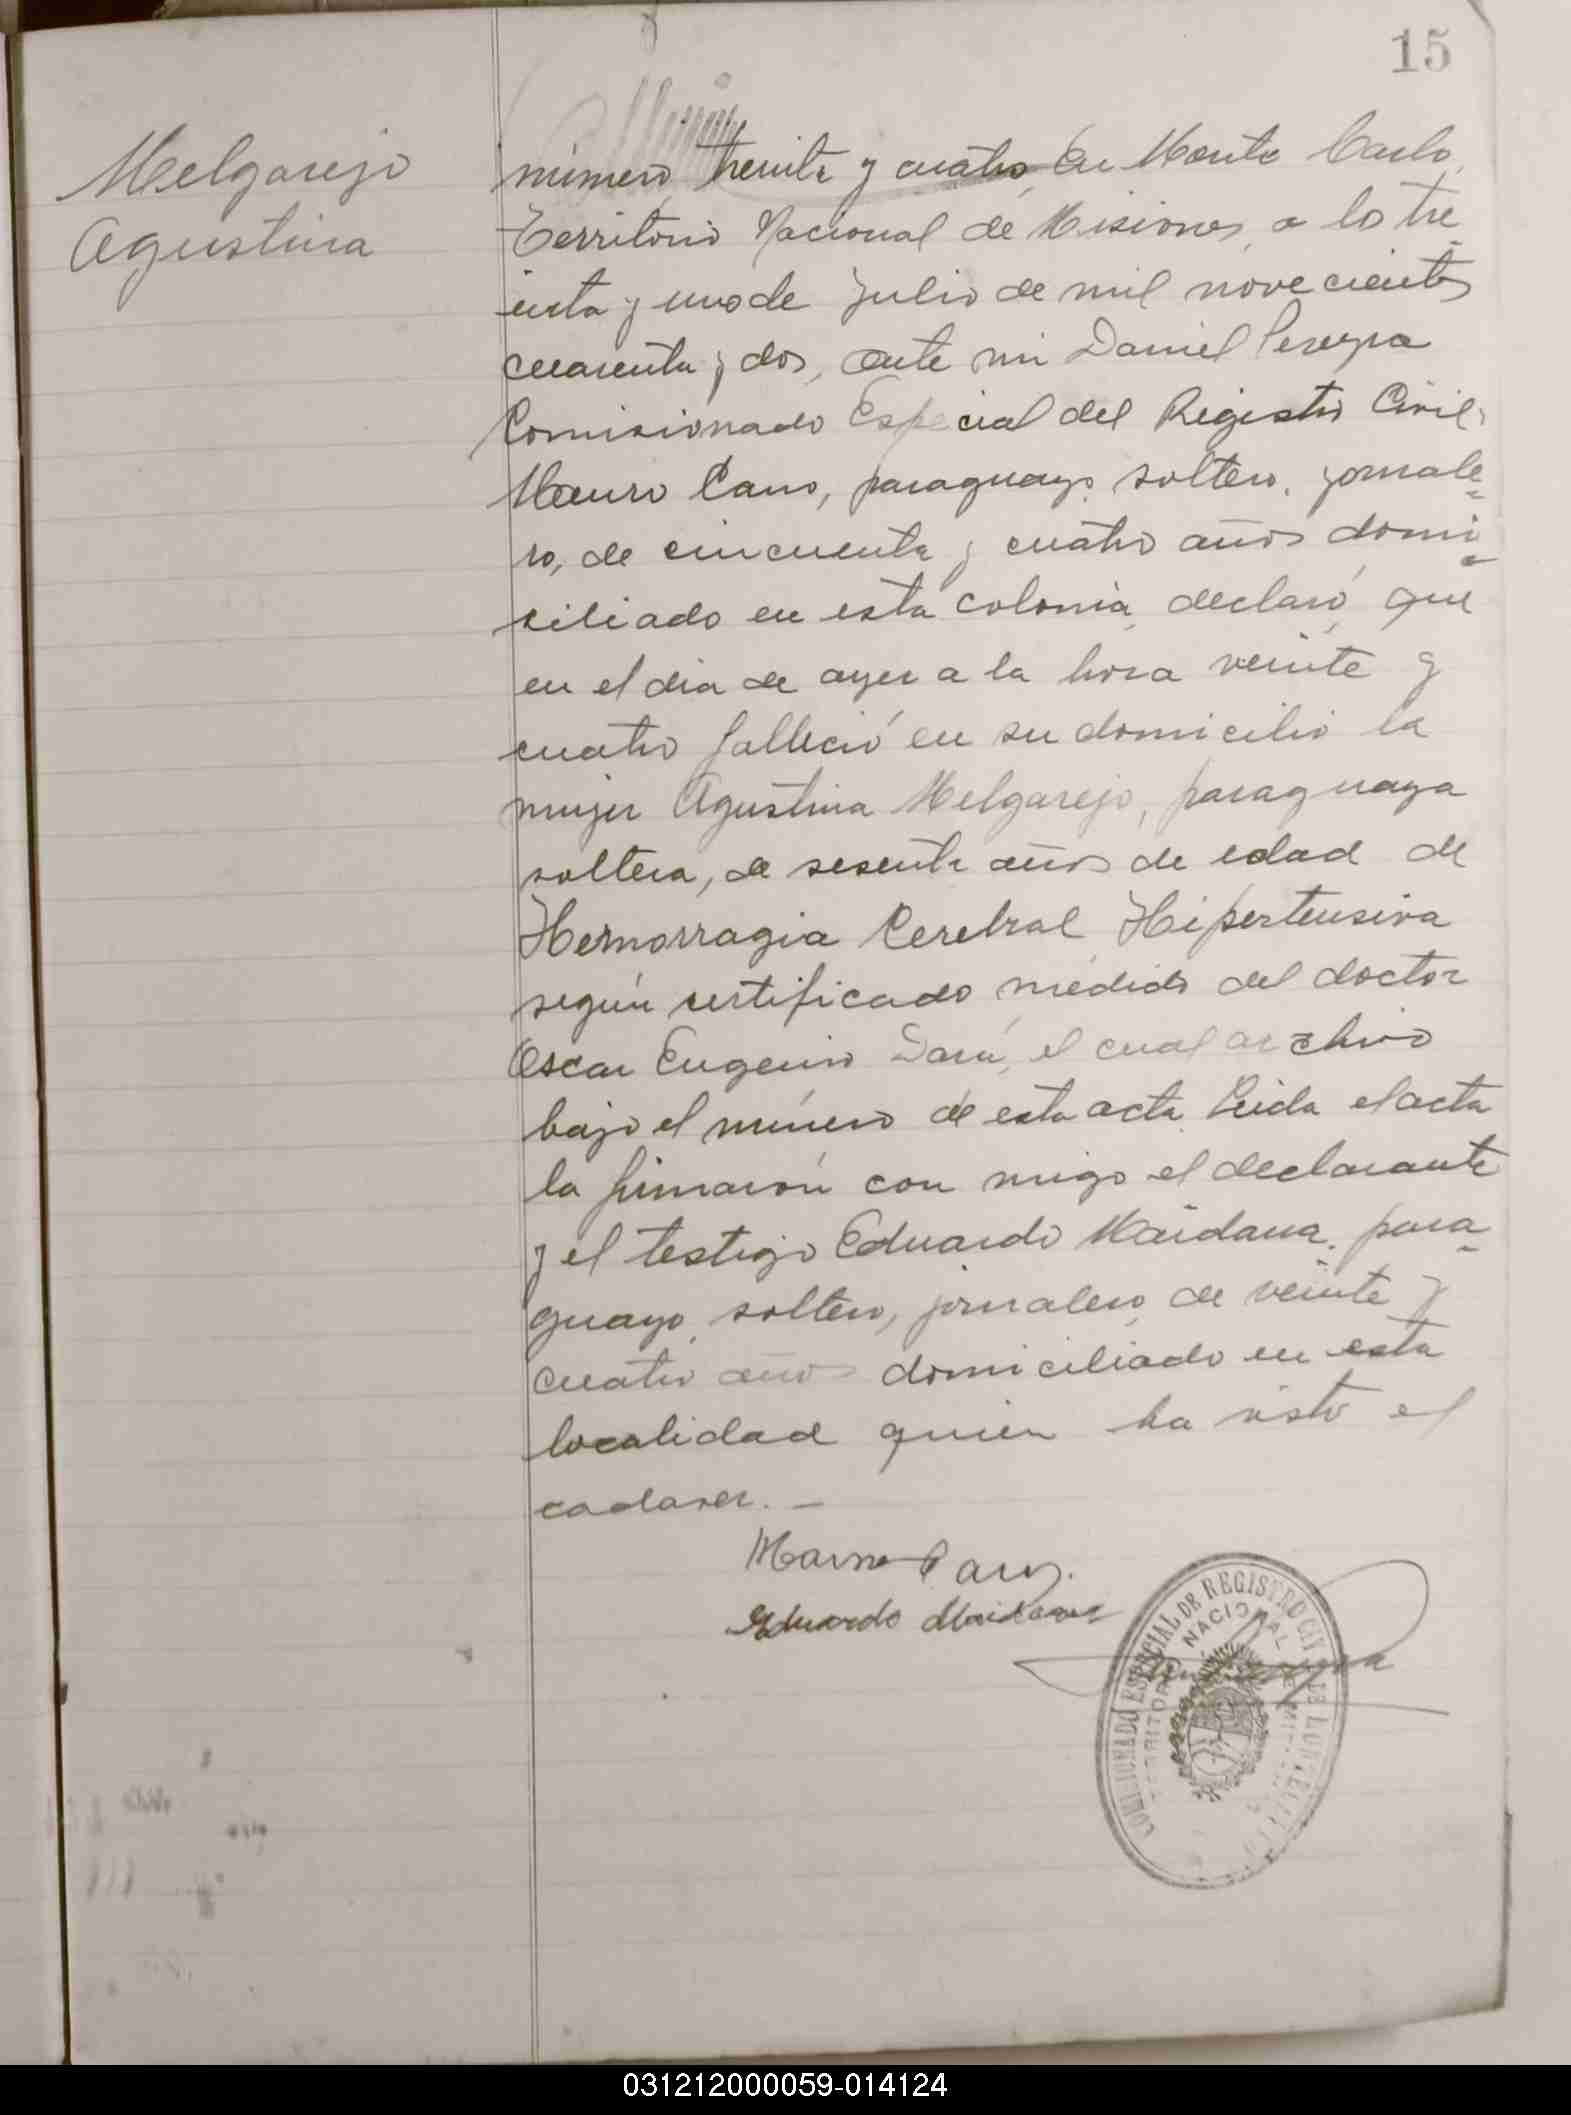 15
Melgarejo
Agustina
número treinta y cuatro En Monte Carlo,
Territorio Nacional de Misiones, a los tre
inta y uno de Julio de mil novecientos
cuarenta y dos, ante mi Daniel Pereyra
Comisionado Especial del Registro Civil,
Mauro Cano, paraguayo, soltero, jornale=
ro, de cincuenta y cuatro años domi=
ciliado en esta colonia, declaró, que
en el dia de ayer a la hora veinte y
cuatro falleció en su domicilio la
mujer Agustina Melgarejo, paraguaya
soltera, de sesenta años de edad de
Hemorragia Cerebral Hipertensiva
según certificado médido del doctor
Oscar Eugenio Darú, el cual archivo
bajo el número de esta acta. Leida el acta
la firmarón con migo el declarante
y el testigo Eduardo Maidana, para=
guayo, soltero, jornalero, de veinte y
cuatro años domiciliado en esta
localidad quien ha visto el
cadaver. —
Mauro Cano.
Eduardo Maidana
COMISIONADO ESPECIAL DE REGISTRO CIVIL DE MONTECARLO
TERRITORIO NACIONAL DE MISIONES
031212000059-014124